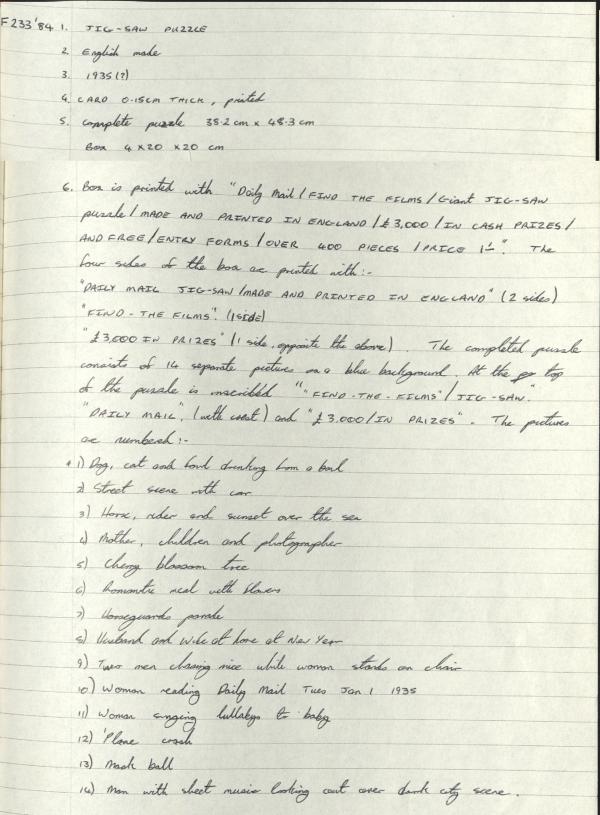 F233'84 1. JIG-SAW PUZZLE
2. English made
3. 1935(?)
4. CARD 0.15cm THICK, printed
5. Complete puzzle 38.2 cm x 48.3 cm
Box 4 x 20 x 20 cm
6. Box is printed with "Daily Mail / FIND THE FILMS / Giant JIG-SAW
puzzle / MADE AND PRINTED IN ENGLAND / £3,000 / IN CASH PRIZES /
AND FREE / ENTRY FORMS / OVER 400 PIECES / PRICE 1/-". The
four sides of the box are printed with:-
"DAILY MAIL JIG-SAW / MADE AND PRINTED IN ENGLAND" (2 sides)
"FIND-THE FILMS". (1 side)
"£3,000 IN PRIZES" (1 side, opposite the above). The completed puzzle
consists of 14 separate pictures on a blue background. At the top
of the puzzle is inscribed ""FIND-THE-FILMS" / JIG-SAW."
"DAILY MAIL". (with crest) and "£3.000 / IN PRIZES". The pictures
are numbered:-
1) Dog, cat and fowl drinking from a bowl
2) Street scene with car
3) Horse, rider and sunset over the sea
4) Mother, children and photographer
5) Cherry blossom tree
6) Romantic meal with flowers
7) Horseguards parade
8) Husband and wife at home at New Year
9) Two men chasing mice while woman stands on chair
10) Woman reading Daily Mail Tues Jan 1 1935
11) Woman singing lullabys to baby
12) 'Plane crash
13) Mask ball
14) Man with sheet music looking out over dark city scene.